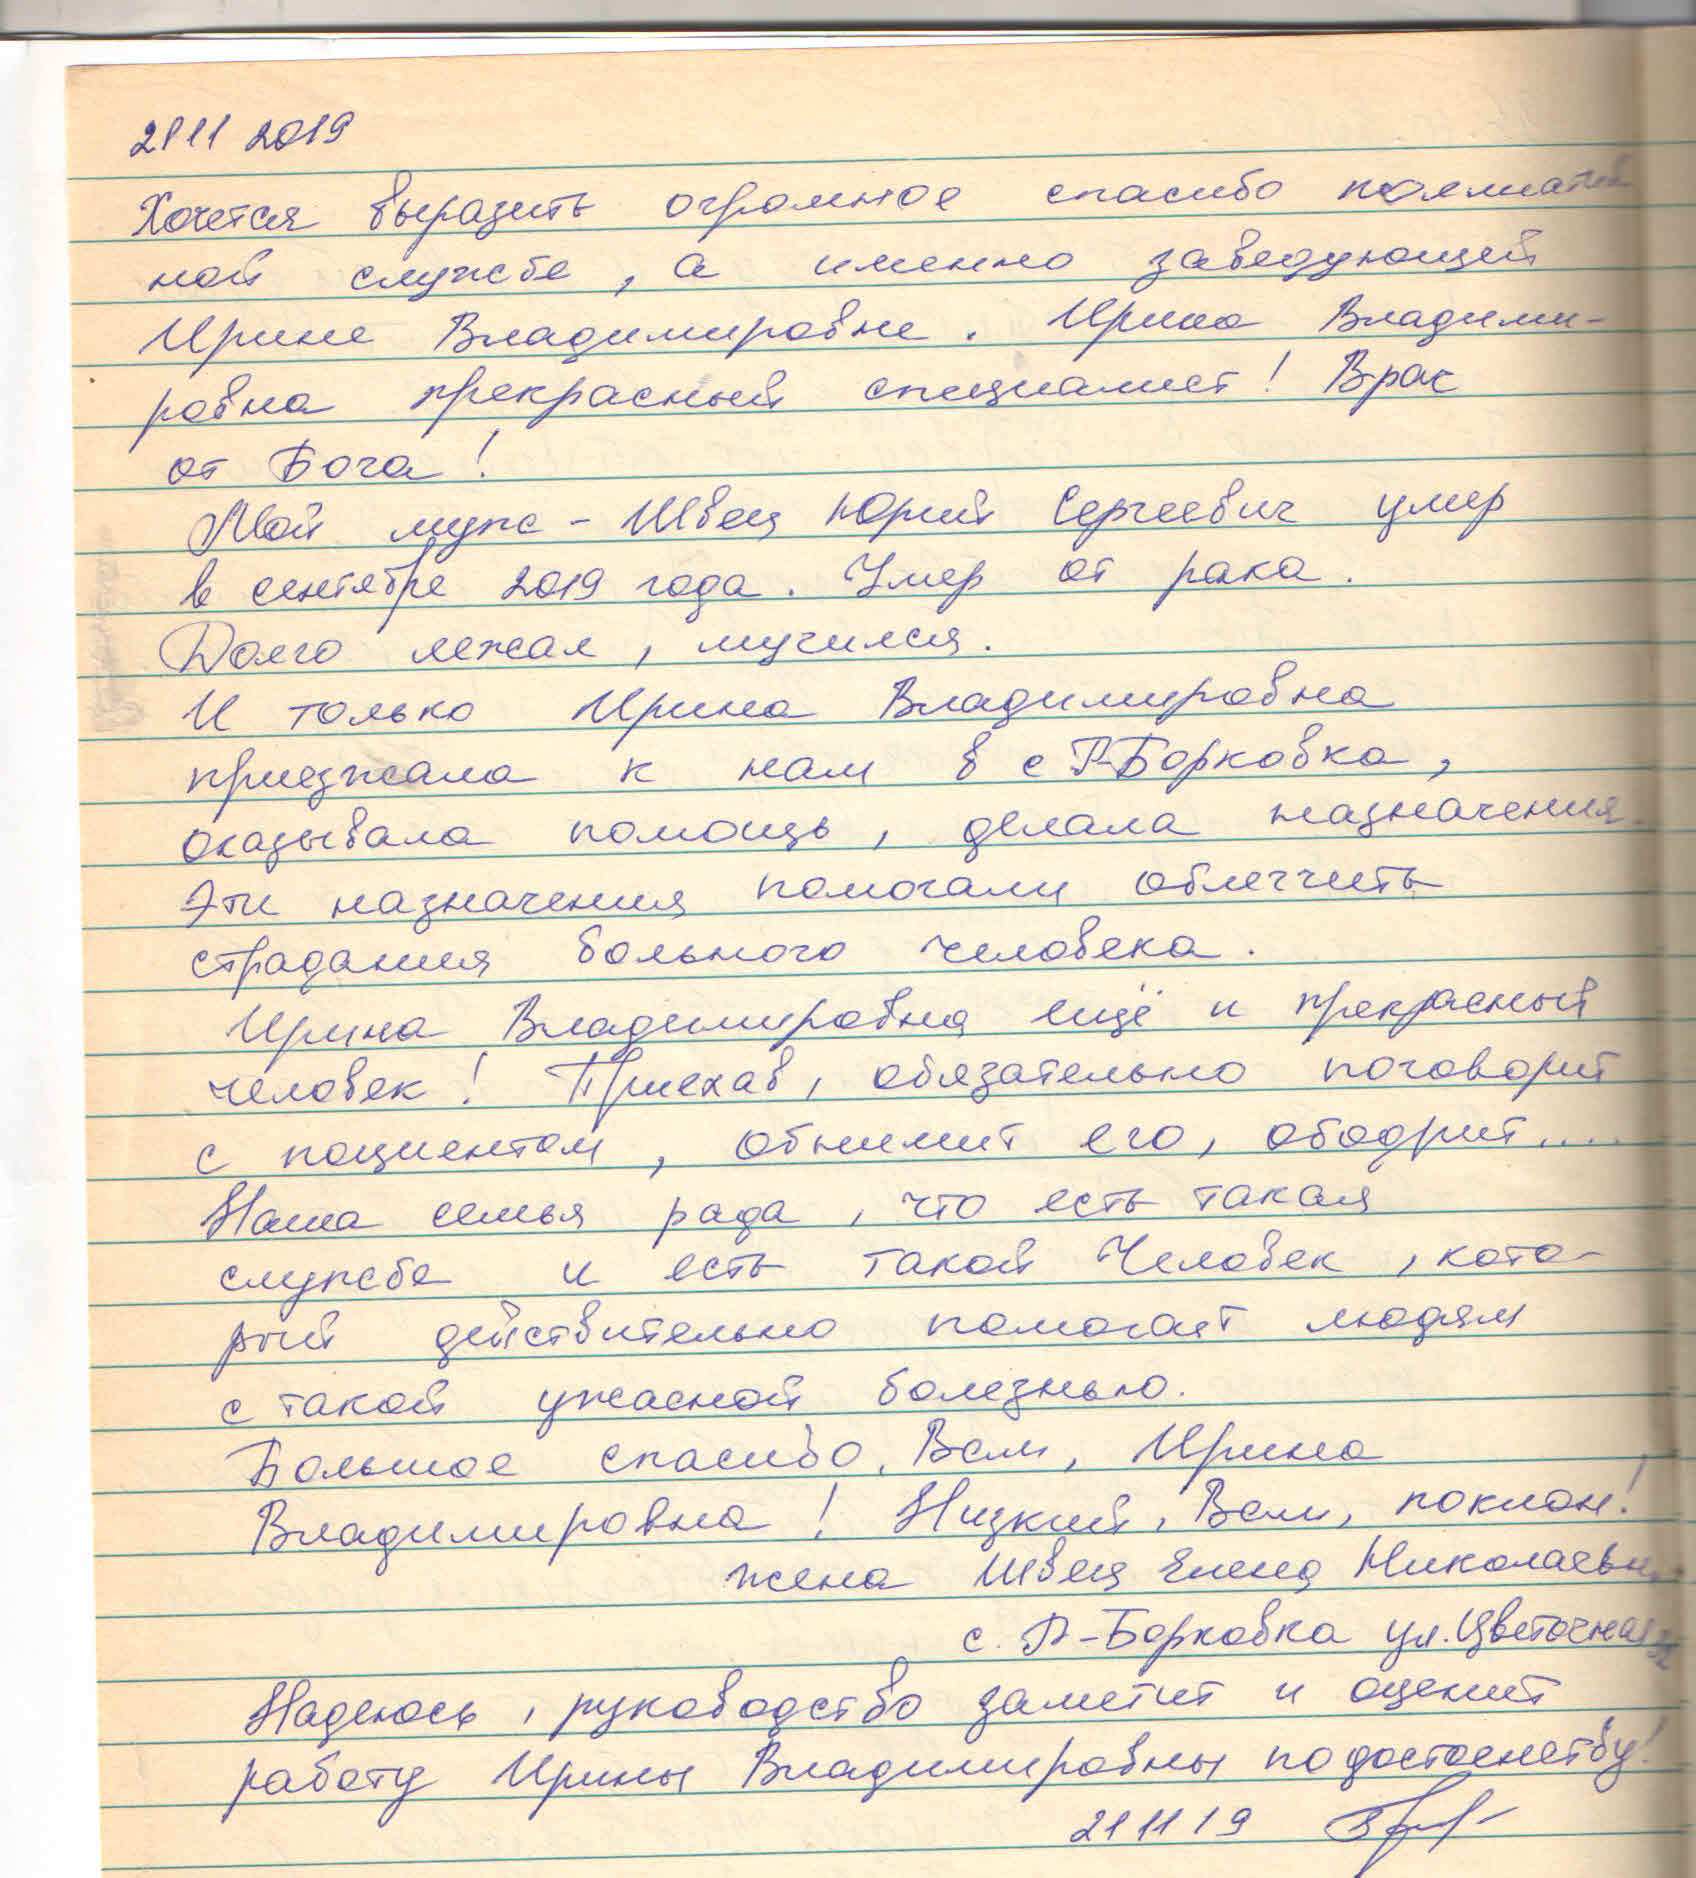 21 11 2019
Хочется выразить огромное спасибо
ной службе, а именно заведующей
Ирине Владимировне. Ирина Владими-
ровна прекрасный специалист! Врач
от Бога!
Мой муж - Швец Юрий Сергеевич умер
в сентябре 2019 года. Умер от рака.
Долго лежал, мучился.
И только Ирина Владимировна
приезжала к нам в с Р-Борковка,
оказывала помощь, делала назначения.
Эти назначения помогали облегчить
страдания больного человека.
Ирина Владимировна ещё и прекрасный
человек! Приехав, обязательно поговорит
с пациентом, обнимит его, ободрит....
Наша семья рада, что есть такая
служба и есть такой Человек, кото-
рый действительно помогает людям
с такой ужасной болезнью.
Большое спасибо, Вам, Ирина
Владимировна! Низкий, Вам, поклон!
жена Швец Елена
с. Р-Борковка ул. Цветочная
Надеюсь, руководство заметит и оценит
работу Ирины Владимировны по достоенству!
21 11 19